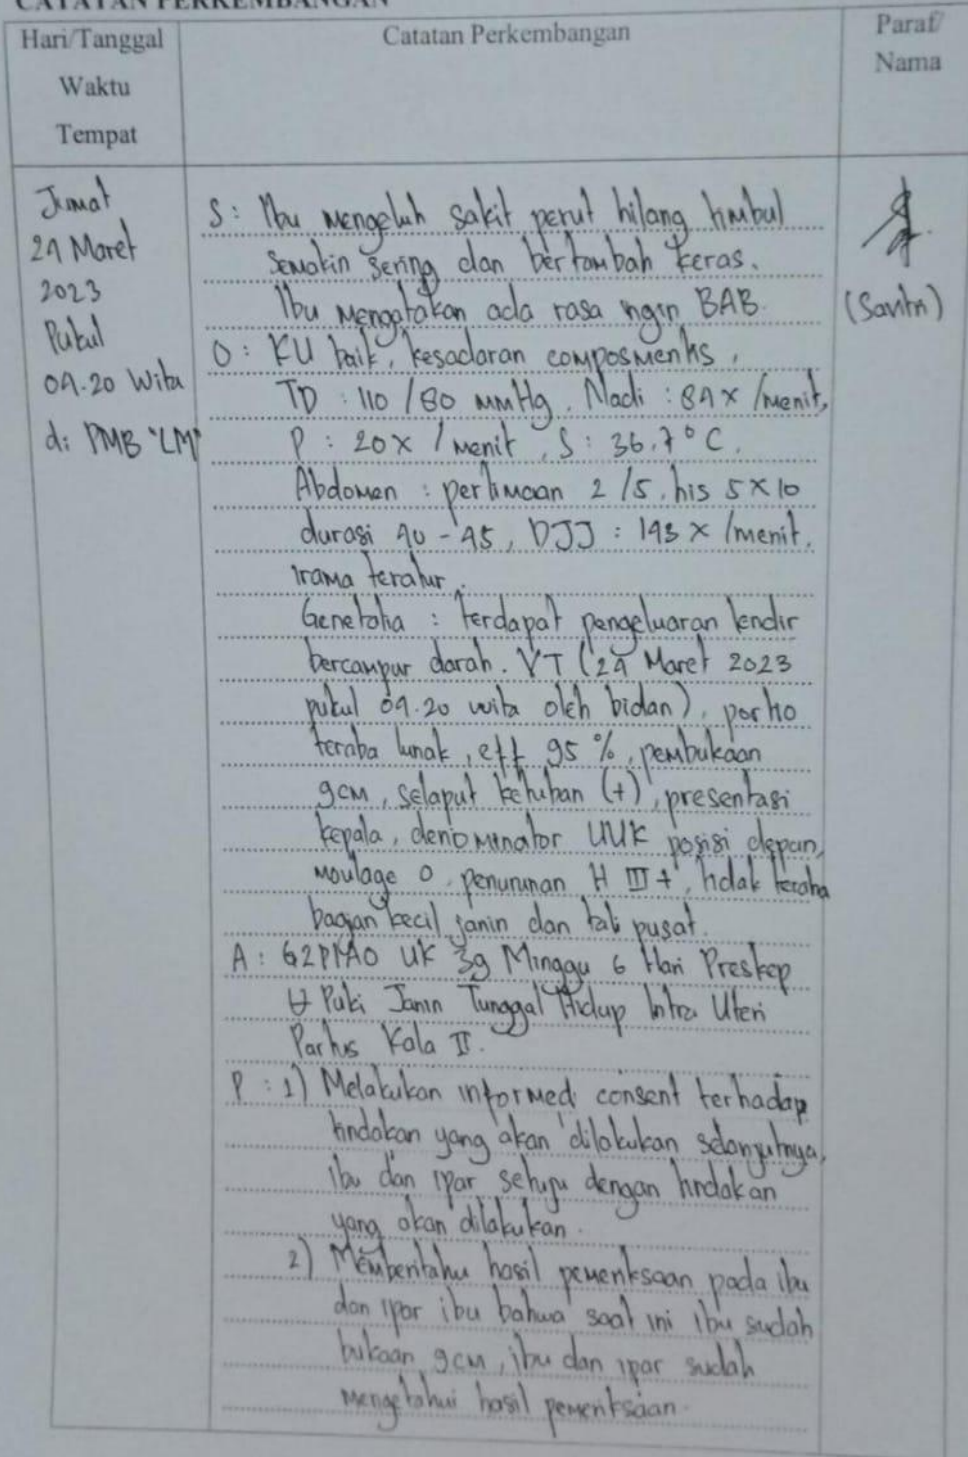 CATATAN PERKEMBANGAN
Hari/Tanggal
Waktu
Tempat
Catatan Perkembangan
Paraf/
Nama
Jumat
24 Maret
2023
Pukul
04.20 Wita
di PMB "LM"
S : Ibu mengeluh sakit perut hilang timbul
semakin sering dan bertambah keras.
Ibu mengatakan ada rasa ingin BAB.
O : KU baik, kesadaran composmentis,
TD : 110 / 80 mmHg, Nadi : 84 x /menit,
P : 20 x / menit, S : 36.7 °C.
Abdomen : perlimaan 2/5, his 5 x 10
durasi 40 - 45, DJJ : 143 x /menit,
irama teratur.
Genetalia : terdapat pengeluaran lendir
bercampur darah. VT (24 Maret 2023
pukul 04.20 wita oleh bidan), portio
teraba lunak, eff 95 %, pembukaan
9cm, selaput ketuban (+), presentasi
kepala, denominator UUK posisi depan,
moulage 0, penurunan H III +, tidak teraba
bagian kecil janin dan tali pusat.
A : G2P1A0 UK 39 Minggu 6 Hari Preskep
⊎ Puki Janin Tunggal Hidup Intra Uteri
Partus Kala II.
P : 1) Melakukan informed consent terhadap
tindakan yang akan dilakukan selanjutnya,
ibu dan ipar setuju dengan tindakan
yang akan dilakukan.
2) Memberitahu hasil pemeriksaan pada ibu
dan ipar ibu bahwa saat ini ibu sudah
bukaan 9cm, ibu dan ipar sudah
mengetahui hasil pemeriksaan.
(Savitri)